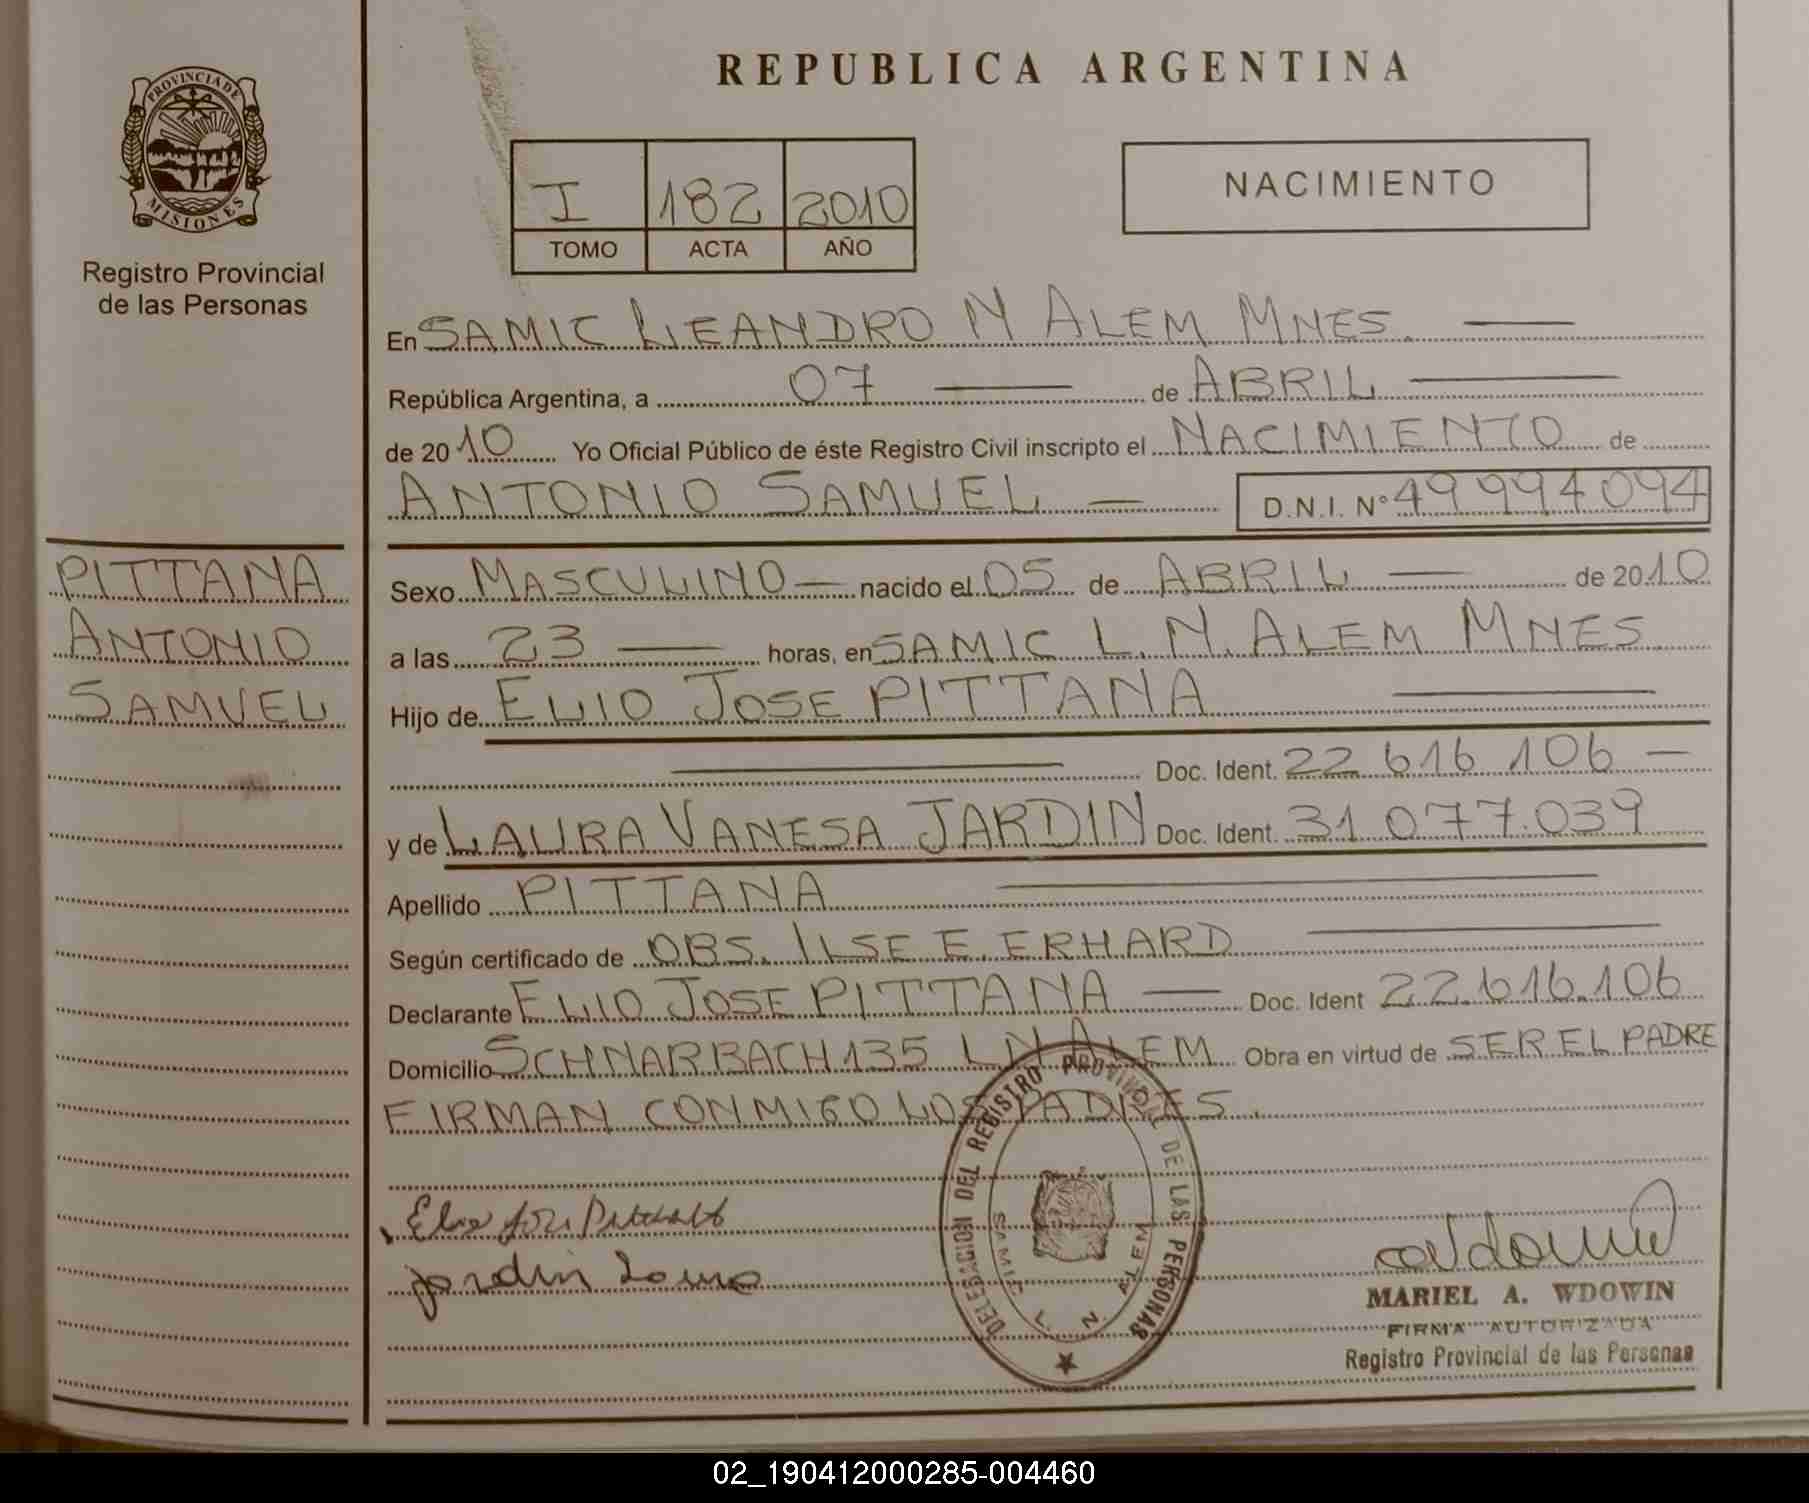 PROVINCIA DE
MISIONES
Registro Provincial
de las Personas
REPUBLICA ARGENTINA
I 182 2010
TOMO ACTA AÑO
NACIMIENTO
En SAMIC LEANDRO N ALEM MNES.
República Argentina, a 07 de ABRIL
de 20 10 Yo Oficial Público de éste Registro Civil inscripto el NACIMIENTO de
ANTONIO SAMUEL D.N.I. N° 49 994 094
PITTANA
ANTONIO
SAMUEL
Sexo MASCULINO nacido el 05 de ABRIL de 20 10
a las 23 horas, en SAMIC L. N. ALEM MNES
Hijo de ELIO JOSE PITTANA
Doc. Ident. 22 616 106
y de LAURA VANESA JARDIN Doc. Ident. 31 077.039
Apellido PITTANA
Según certificado de OBS. ILSE E. ERHARD
Declarante ELIO JOSE PITTANA Doc. Ident 22.616.106
Domicilio SCHNARBACH 135 L N ALEM Obra en virtud de SER EL PADRE
FIRMAN CONMIGO LOS PADRES.
DELEGACION DEL REGISTRO PROVINCIAL DE LAS PERSONAS
SAMIC L. N. ALEM
Elio José Pittana
Jardin Laura
MARIEL A. WDOWIN
FIRMA AUTORIZADA
Registro Provincial de las Personas
02_190412000285-004460